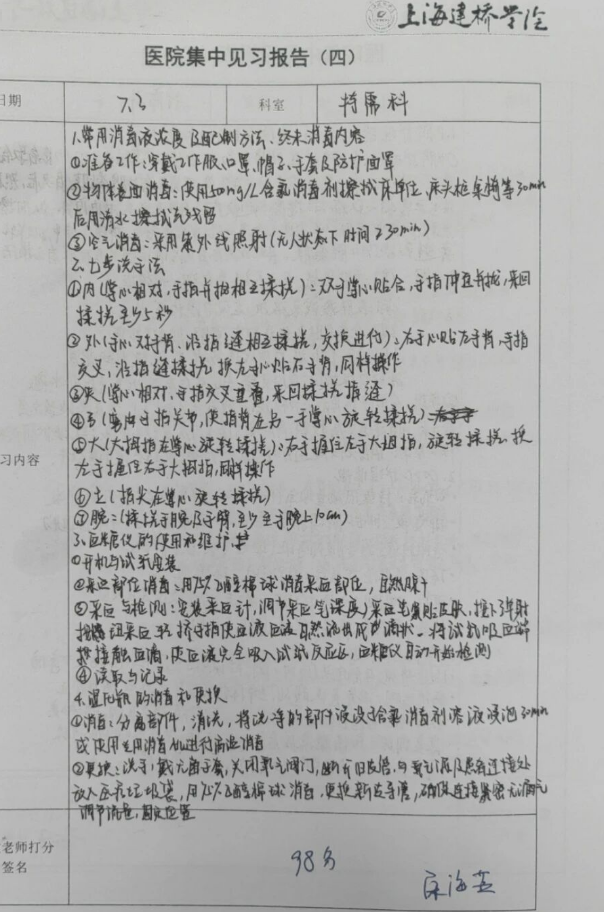 上海建桥学院
医院集中见习报告（四）
日期 7.3 科室 特需科
1.常用消毒液浓度及配制方法、终末消毒内容
①准备工作：穿戴工作服、口罩、帽子、手套及防护面罩
②物体表面消毒：使用50mg/L含氯消毒剂擦拭床单位、床头柜桌椅等30min
后用清水擦拭去残留
③空气消毒：采用紫外线照射(无人状态下时间≥30min)
2.七步洗手法
①内(掌心相对，手指并拢相互揉搓)：双手掌心贴合，手指伸直并拢，来回
揉搓至少5秒
②外(手心对手背、沿指缝相互揉搓，交换进行)：右手心贴左手背，手指
交叉，沿指缝揉搓 换左手心贴右手背，同样操作
③夹(掌心相对，手指交叉重叠，来回揉搓指缝)
④弓(弯曲手指关节，使指背在另一手掌心旋转揉搓)
⑤大(大拇指在掌心旋转揉搓)：右手握住左手大拇指，旋转揉搓，换
左手握住右手大拇指，同样操作
⑥立(指尖在掌心旋转揉搓)
⑦腕：(揉搓手腕及手臂，至少至手腕上10cm)
3.血糖仪的使用和维护
①开机与试纸安装
②采血部位消毒：用75%乙醇棉球消毒采血部位，自然晾干
③采血与检测：安装采血针，调节采血笔深度，采血笔紧贴皮肤，按下弹射
按钮 采血 轻挤手指使血液自然流出成滴状。将试纸吸血端
接触血滴，使血液完全吸入试纸反应区，血糖仪自动开始检测
④读取与记录
4.湿化瓶的消毒和更换
①消毒：分离部件，清洗，将洗净的部件浸没含氯消毒剂溶液浸泡30min
或使用专用消毒机进行高温消毒
②更换：洗手，戴无菌手套，关闭氧气阀门，断开旧皮管，与氧气源及患者连接处
放入医疗垃圾袋，用75%乙醇棉球消毒，更换新皮导管，确保连接紧密无漏气
调节流量，固定位置
习内容
老师打分
签名
98分